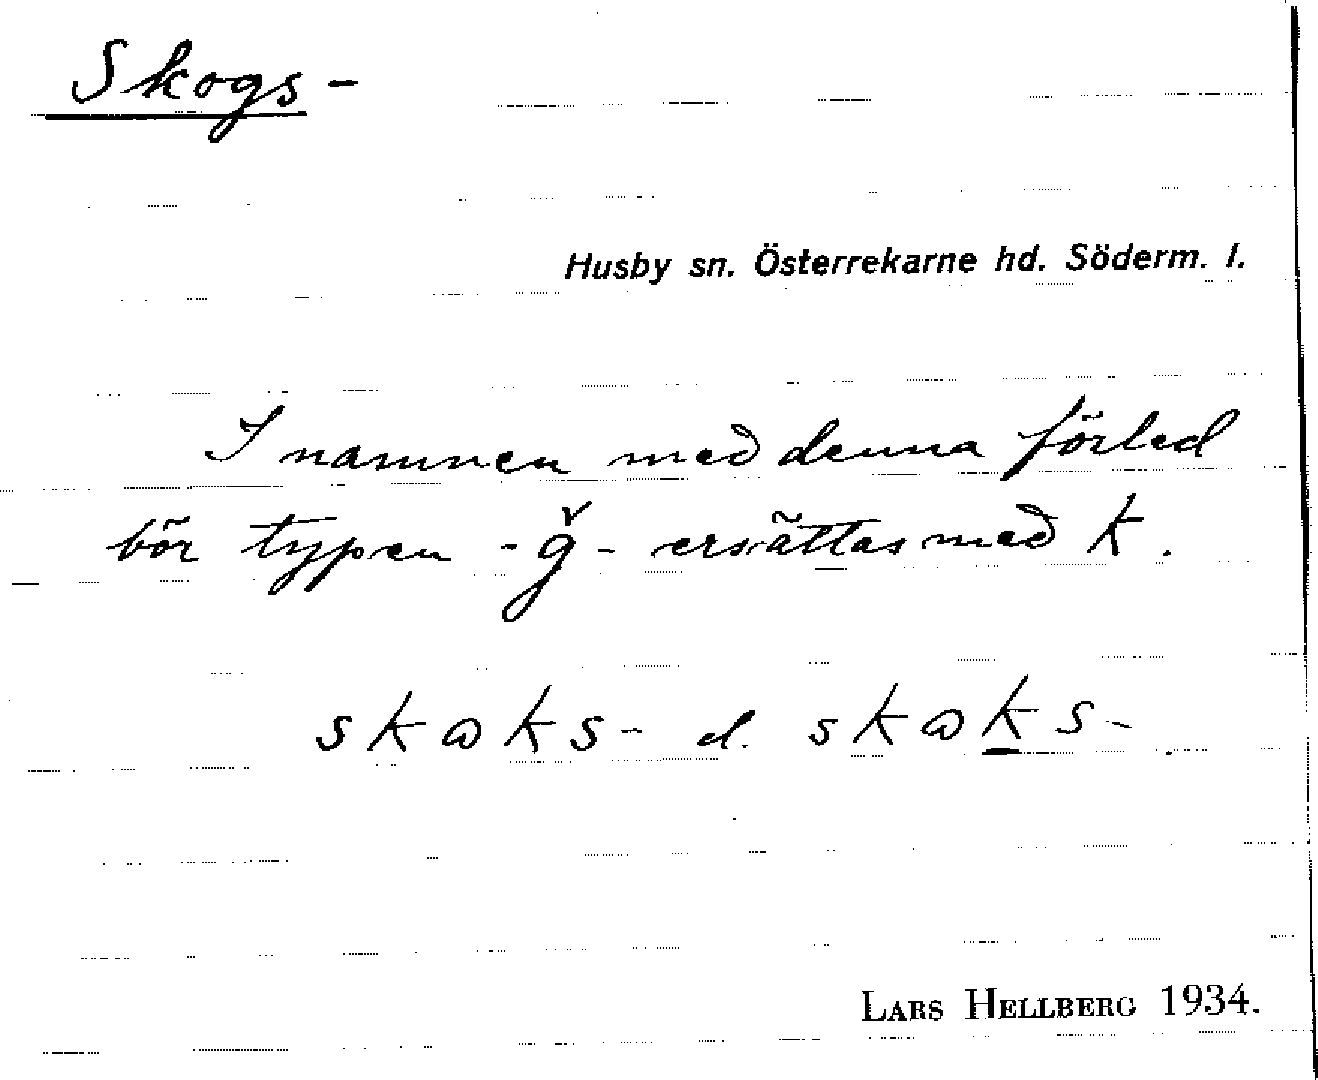 Skogs-
Husby sn. Österrekarne hd. Söderm. l.
I namnen med denna förled
bör typen -ǧ- ersättas med k.
skɷks- el. skɷks-
LARS HELLBERG 1934.